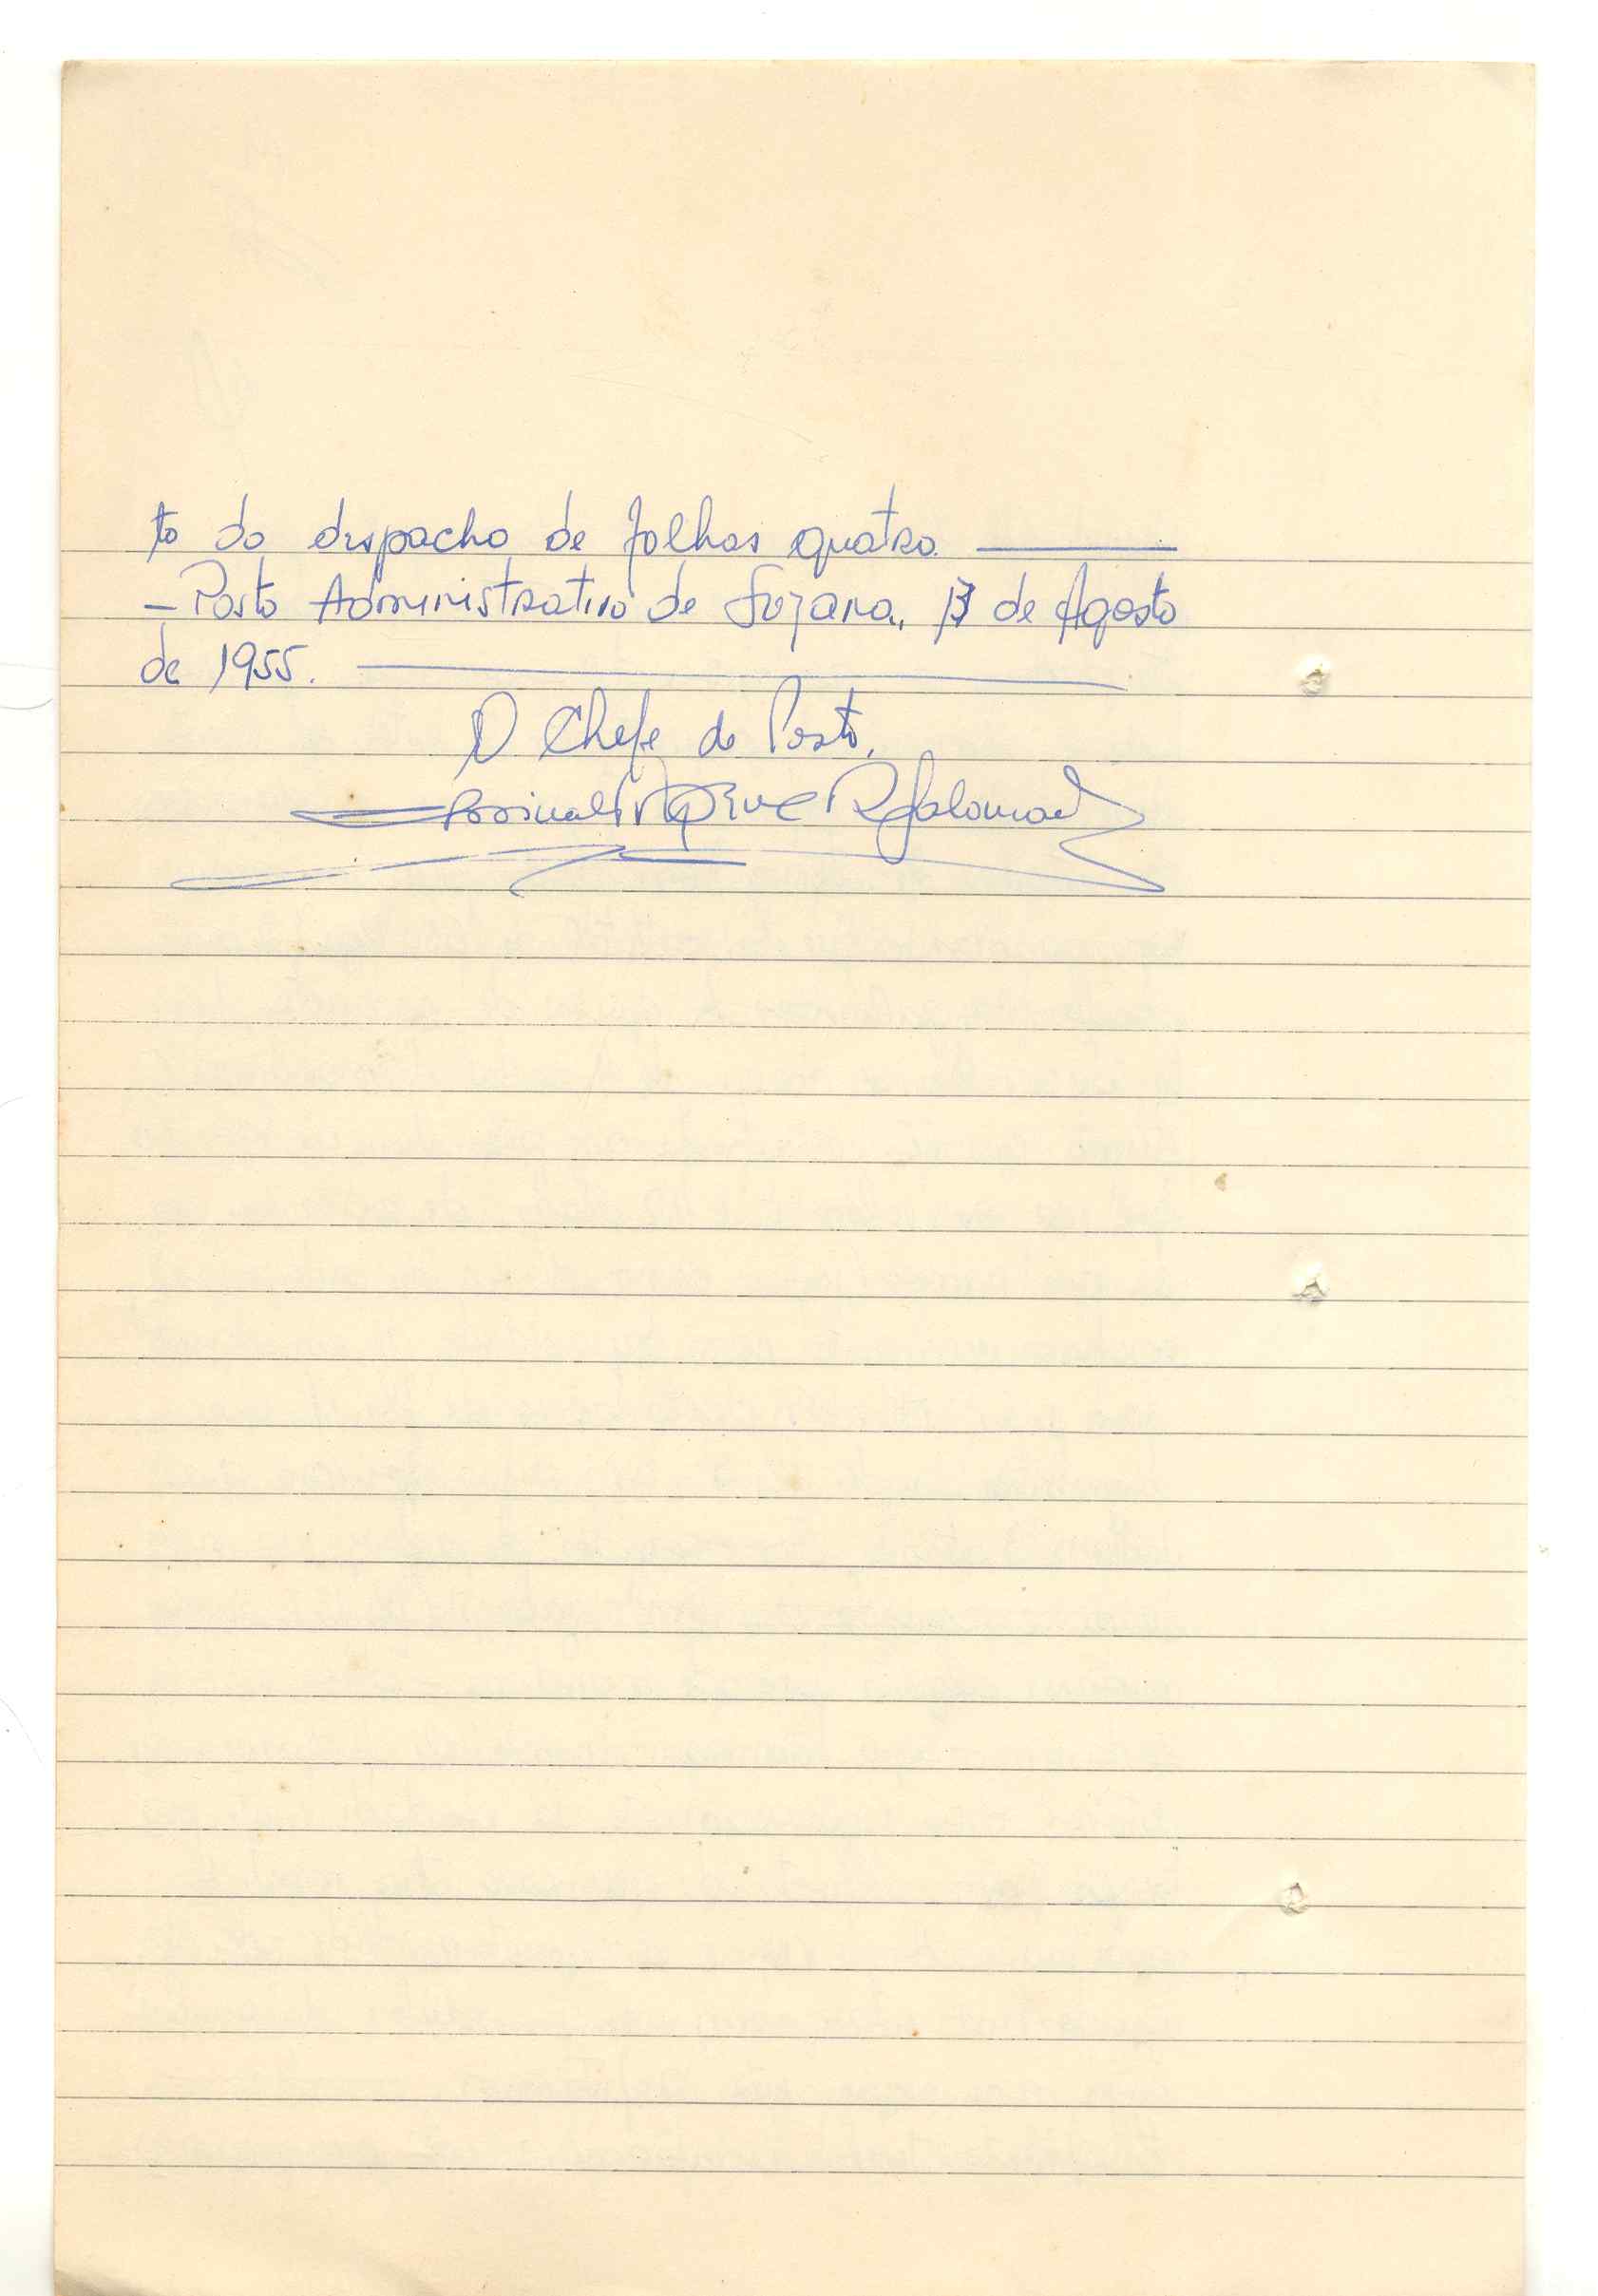 to do despacho de folhas quatro.
— Posto Administrativo de Sozana, 13 de Agosto
de 1955.
O Chefe de Posto,